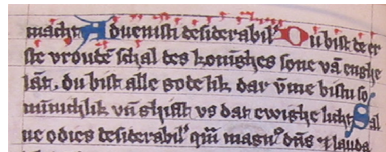 macht Aduenisti desiderabilꝰ Du bist de er
ste vroude schal des koninghes sone vā enghe
lāt. du bist alle gode lik dar v̄me bistu so
mīnichlik vn̄ ghifft vs dat ewighe licht Sal
ue o dies desiderabilꝰ qm̄ magnꝰ dn̄s ⁊ lauda